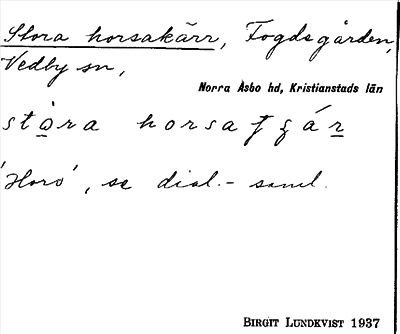 Stora horsakärr, Fogdegården,
Vedby sn,
Norra Åsbo hd, Kristianstads län
stòra horsa
'Hors', se dial.- saml.
BIRGIT LUNDKVIST 1937